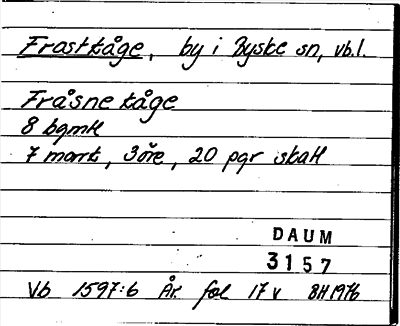 Frastkåge, by i Byske sn, vb.l.
Fråsne kåge
8 bgmtl
7 mark, 3 öre, 20 pgr skatt
DAUM
3157
Vb 1597:6 År fol 17 v BH 1976